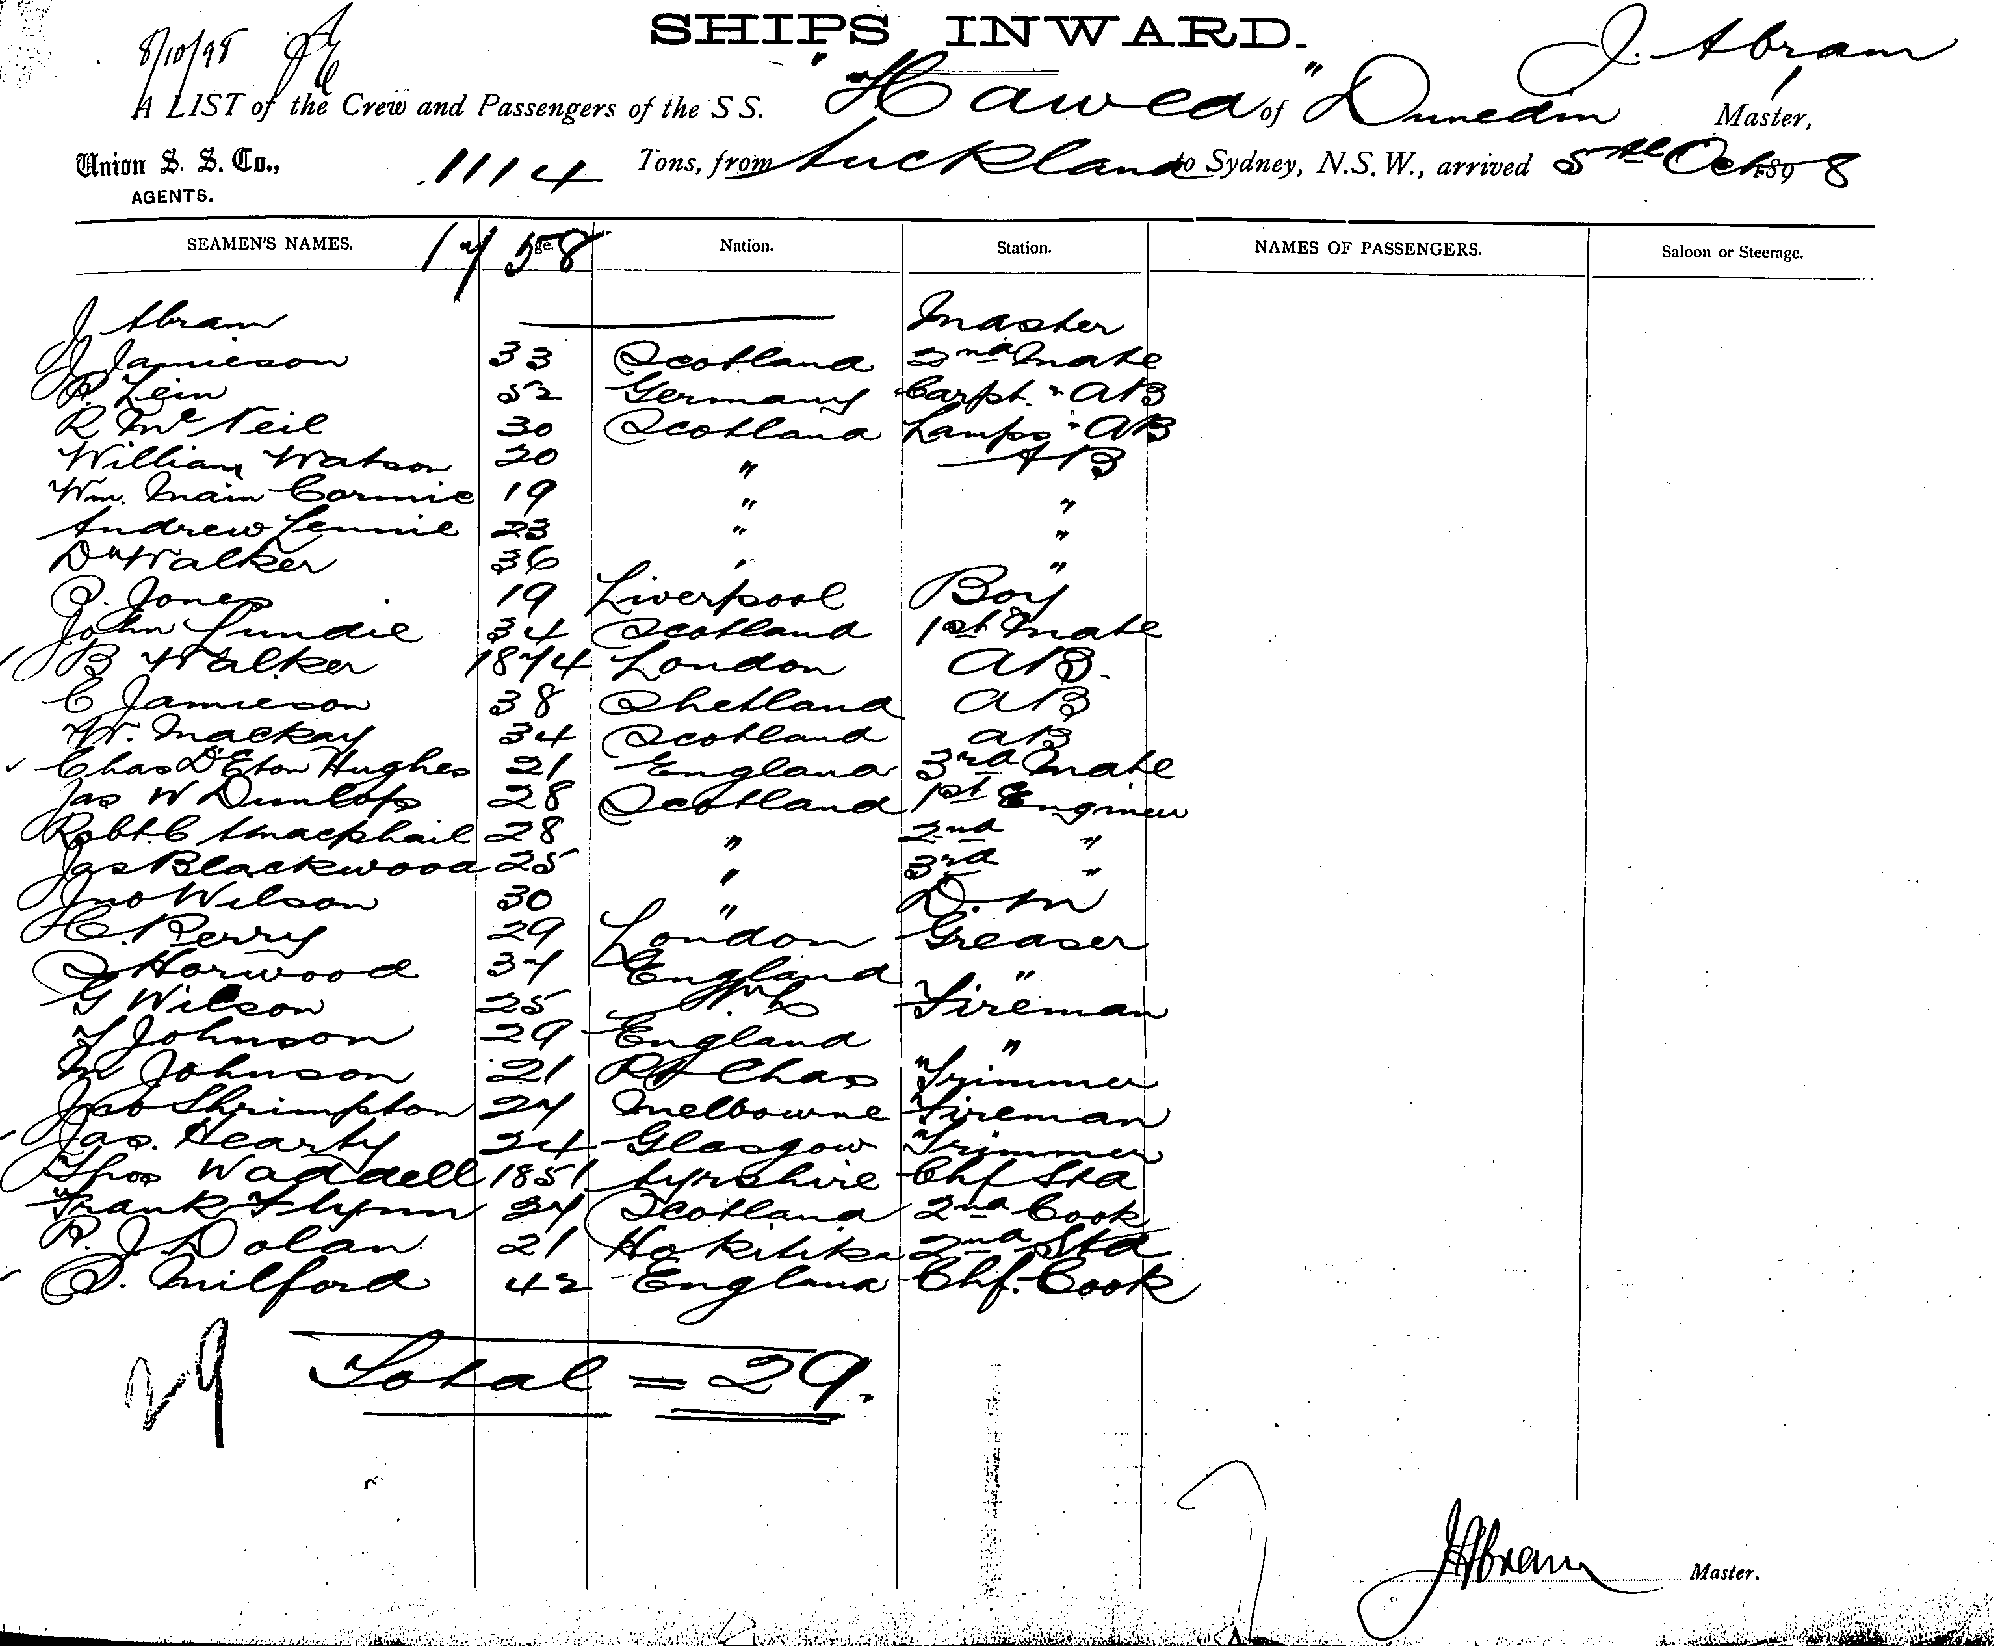 SHIPS INWARD.
8/10/98
J. Abram
A LIST of the Crew and Passengers of the S S. "Hawea" of Dunedin Master,
Union S. S. Co., 1114 Tons, from Auckland to Sydney, N.S.W., arrived 5th Oct 1898
AGENTS.
SEAMEN'S NAMES. Age. Nation. Station. NAMES OF PASSENGERS. Saloon or Steerage.
58
J Abram Master
J Jamieson 33 Scotland 2nd Mate
P. Zein 52 Germany Carpt. " AB
R McNeil 30 Scotland Lamps " AB
William Watson 20 " AB
Wm. Main Cormie 19 " "
Andrew Lennie 23 " "
Dn Walker 36 " "
P. Jones 19 Liverpool Boy
John Lundie 34 Scotland 1st Mate
B Walker 1874 London AB.
C Jamieson 38 Shetland AB
W. Mackay 34 Scotland AB
Chas D'Eton Hughes 21 England 3rd Mate
Jas W Dunlop 28 Scotland 1st Engineer
Robt. C Macphail 28 " 2nd "
Jas Blackwood 25 " 3rd "
Jno Wilson 30 " D. M
C. Perry 29 London Greaser
Horwood 37 England "
G Wilson 25 Fireman
T Johnson 29 England "
M Johnson 21 Pt Chas Trimmer
Jno Shrimpton 27 Melbourne Fireman
Jas. Hearty 24 Glasgow Trimmer
Thos Waddell 1851 Ayrshire Chf Std
Frank Flynn 27 Scotland 2nd Cook
P. J Dolan 21 Hokitika 2nd Std
S. Milford 42 England Chf. Cook
29 Total = 29.
J Abram Master.